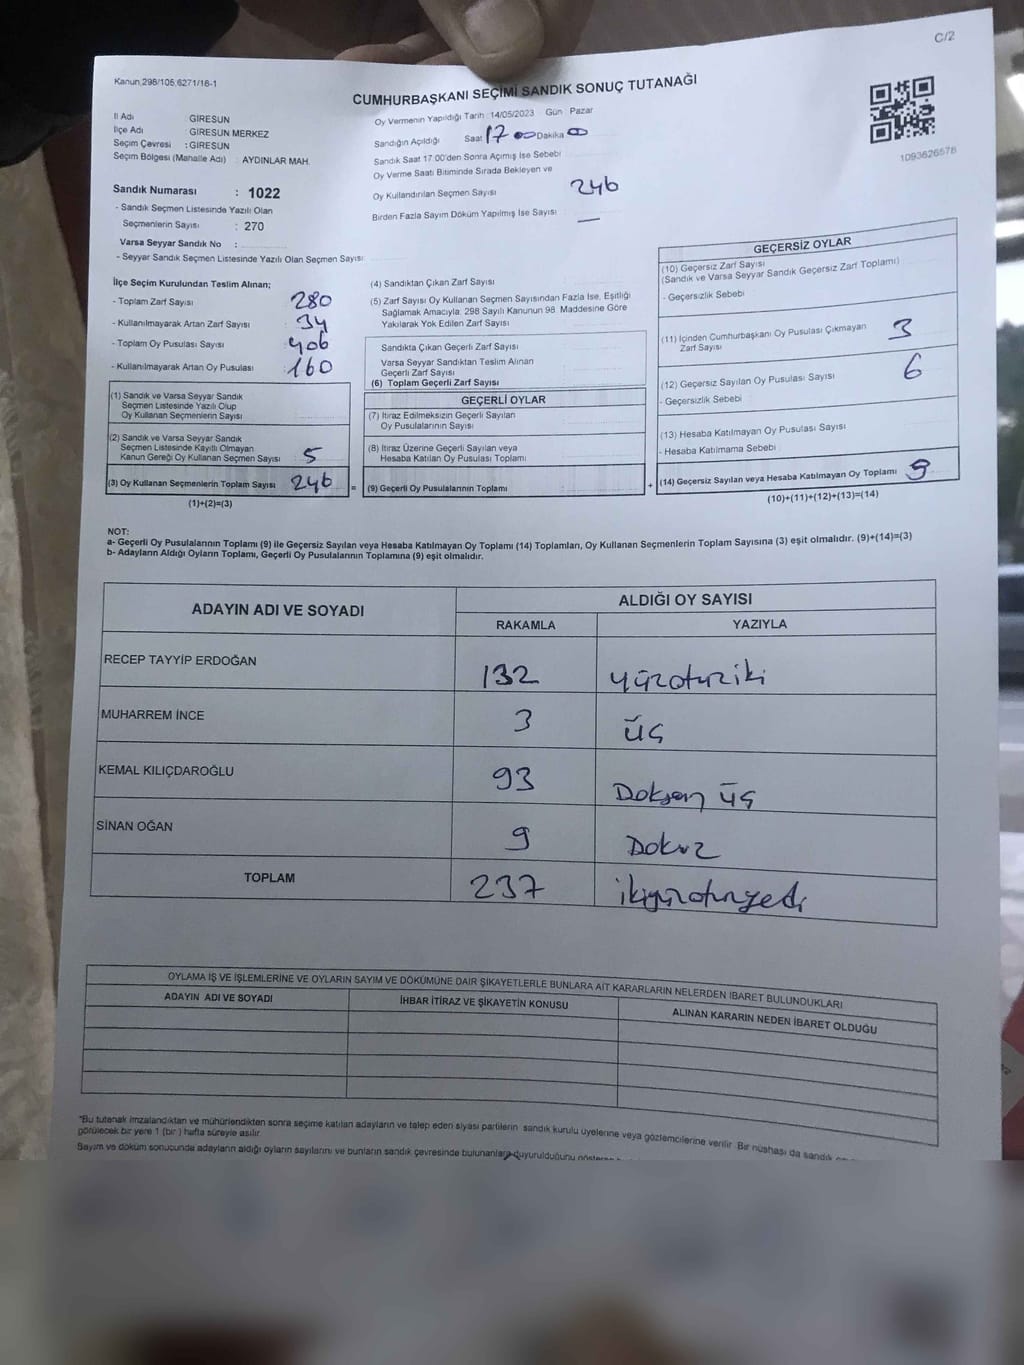 C/2
Kanun 298/105,6271/18-1
CUMHURBAŞKANI SEÇİMİ SANDIK SONUÇ TUTANAĞI
İl Adı : GİRESUN
İlçe Adı : GİRESUN MERKEZ
Seçim Çevresi : GİRESUN
Seçim Bölgesi (Mahalle Adı) : AYDINLAR MAH.
Sandık Numarası : 1022
- Sandık Seçmen Listesinde Yazılı Olan
Seçmenlerin Sayısı : 270
Varsa Seyyar Sandık No :
- Seyyar Sandık Seçmen Listesinde Yazılı Olan Seçmen Sayısı
Oy Vermenin Yapıldığı Tarih : 14/05/2023 Gün : Pazar
Sandığın Açıldığı Saat 17 00 Dakika 00
Sandık Saat 17.00'den Sonra Açımış İse Sebebi
Oy Verme Saati Bitiminde Sırada Bekleyen ve
Oy Kullandırılan Seçmen Sayısı 246
Birden Fazla Sayım Döküm Yapılmış İse Sayısı —
1093626578
İlçe Seçim Kurulundan Teslim Alınan;
- Toplam Zarf Sayısı 280
- Kullanılmayarak Artan Zarf Sayısı 34
- Toplam Oy Pusulası Sayısı 406
- Kullanılmayarak Artan Oy Pusulası 160
(1) Sandık ve Varsa Seyyar Sandık
Seçmen Listesinde Yazılı Olup
Oy Kullanan Seçmenlerin Sayısı
(2) Sandık ve Varsa Seyyar Sandık
Seçmen Listesinde Kayıtlı Olmayan
Kanun Gereği Oy Kullanan Seçmen Sayısı 5
(3) Oy Kullanan Seçmenlerin Toplam Sayısı 246 =
(1)+(2)=(3)
(4) Sandıktan Çıkan Zarf Sayısı
(5) Zarf Sayısı Oy Kullanan Seçmen Sayısından Fazla İse, Eşitliği
Sağlamak Amacıyla, 298 Sayılı Kanunun 98. Maddesine Göre
Yakılarak Yok Edilen Zarf Sayısı
Sandıkta Çıkan Geçerli Zarf Sayısı
Varsa Seyyar Sandıktan Teslim Alınan
Geçerli Zarf Sayısı
(6) Toplam Geçerli Zarf Sayısı
GEÇERLİ OYLAR
(7) İtiraz Edilmeksizin Geçerli Sayılan
Oy Pusulalarının Sayısı
(8) İtiraz Üzerine Geçerli Sayılan veya
Hesaba Katılan Oy Pusulası Toplamı
(9) Geçerli Oy Pusulalarının Toplamı +
GEÇERSİZ OYLAR
(10) Geçersiz Zarf Sayısı
(Sandık ve Varsa Seyyar Sandık Geçersiz Zarf Toplamı)
- Geçersizlik Sebebi
(11) İçinden Cumhurbaşkanı Oy Pusulası Çıkmayan
Zarf Sayısı 3
(12) Geçersiz Sayılan Oy Pusulası Sayısı 6
- Geçersizlik Sebebi
(13) Hesaba Katılmayan Oy Pusulası Sayısı
- Hesaba Katılmama Sebebi
(14) Geçersiz Sayılan veya Hesaba Katılmayan Oy Toplamı 9
(10)+(11)+(12)+(13)=(14)
NOT:
a- Geçerli Oy Pusulalarının Toplamı (9) ile Geçersiz Sayılan veya Hesaba Katılmayan Oy Toplamı (14) Toplamları, Oy Kullanan Seçmenlerin Toplam Sayısına (3) eşit olmalıdır. (9)+(14)=(3)
b- Adayların Aldığı Oyların Toplamı, Geçerli Oy Pusulalarının Toplamına (9) eşit olmalıdır.
ADAYIN ADI VE SOYADI ALDIĞI OY SAYISI
RAKAMLA YAZIYLA
RECEP TAYYİP ERDOĞAN 132 yüzotuziki
MUHARREM İNCE 3 üç
KEMAL KILIÇDAROĞLU 93 Doksan üç
SİNAN OĞAN 9 Dokuz
TOPLAM 237 ikiyüzotuzyedi
OYLAMA İŞ VE İŞLEMLERİNE VE OYLARIN SAYIM VE DÖKÜMÜNE DAİR ŞİKAYETLERLE BUNLARA AİT KARARLARIN NELERDEN İBARET BULUNDUKLARI
ADAYIN ADI VE SOYADI İHBAR İTİRAZ VE ŞİKAYETİN KONUSU ALINAN KARARIN NEDEN İBARET OLDUĞU
*Bu tutanak imzalandıktan ve mühürlendikten sonra seçime katılan adayların ve talep eden siyasi partilerin sandık kurulu üyelerine veya gözlemcilerine verilir. Bir nüshası da sandık
görülecek bir yere 1 (bir ) hafta süreyle asılır.
Sayım ve döküm sonucunda adayların aldığı oyların sayılarını ve bunların sandık çevresinde bulunanlara duyurulduğunu